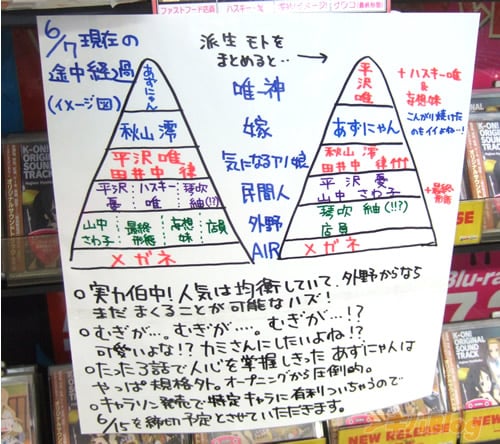 ファストフード店員 ハスキー・唯
6/7 現在の
途中経過
(イメージ図)
派生モトを
まとめると…→
あずにゃん
秋山 澪
平沢 唯
田井中 律
平沢 憂
ハスキー 唯
琴吹 紬(!?)
山中 さわ子
最終形態
妄想妹
店員
メガネ
唯一神
嫁
気になるアノ娘
民間人
外野
AIR
平沢唯
あずにゃん
秋山 澪
田井中 律
平沢 憂
山中 さわ子
琴吹 紬(!!?)
店員
メガネ
+ハスキー唯
&
妄想妹
こんがり焼けた
のもイイよね…!
+最終形態
○実力伯中!人気は均衡していて、外野からなら
まだまくることが可能なハズ!
○むぎが…。むぎが…。むぎが…!?
可愛いよな!?カミさんにしたいよね!?
○たった3話で人心を掌握しきったあずにゃんは
やっぱ規格外。オープニングから圧倒的。
○キャラソン発売で特定キャラに有利ついちゃうので
6/15を締切予定とさせていただきます。
K-ON!
ORIGINAL
SOUND
TRACK
NEW RELEASE
Blu-ra